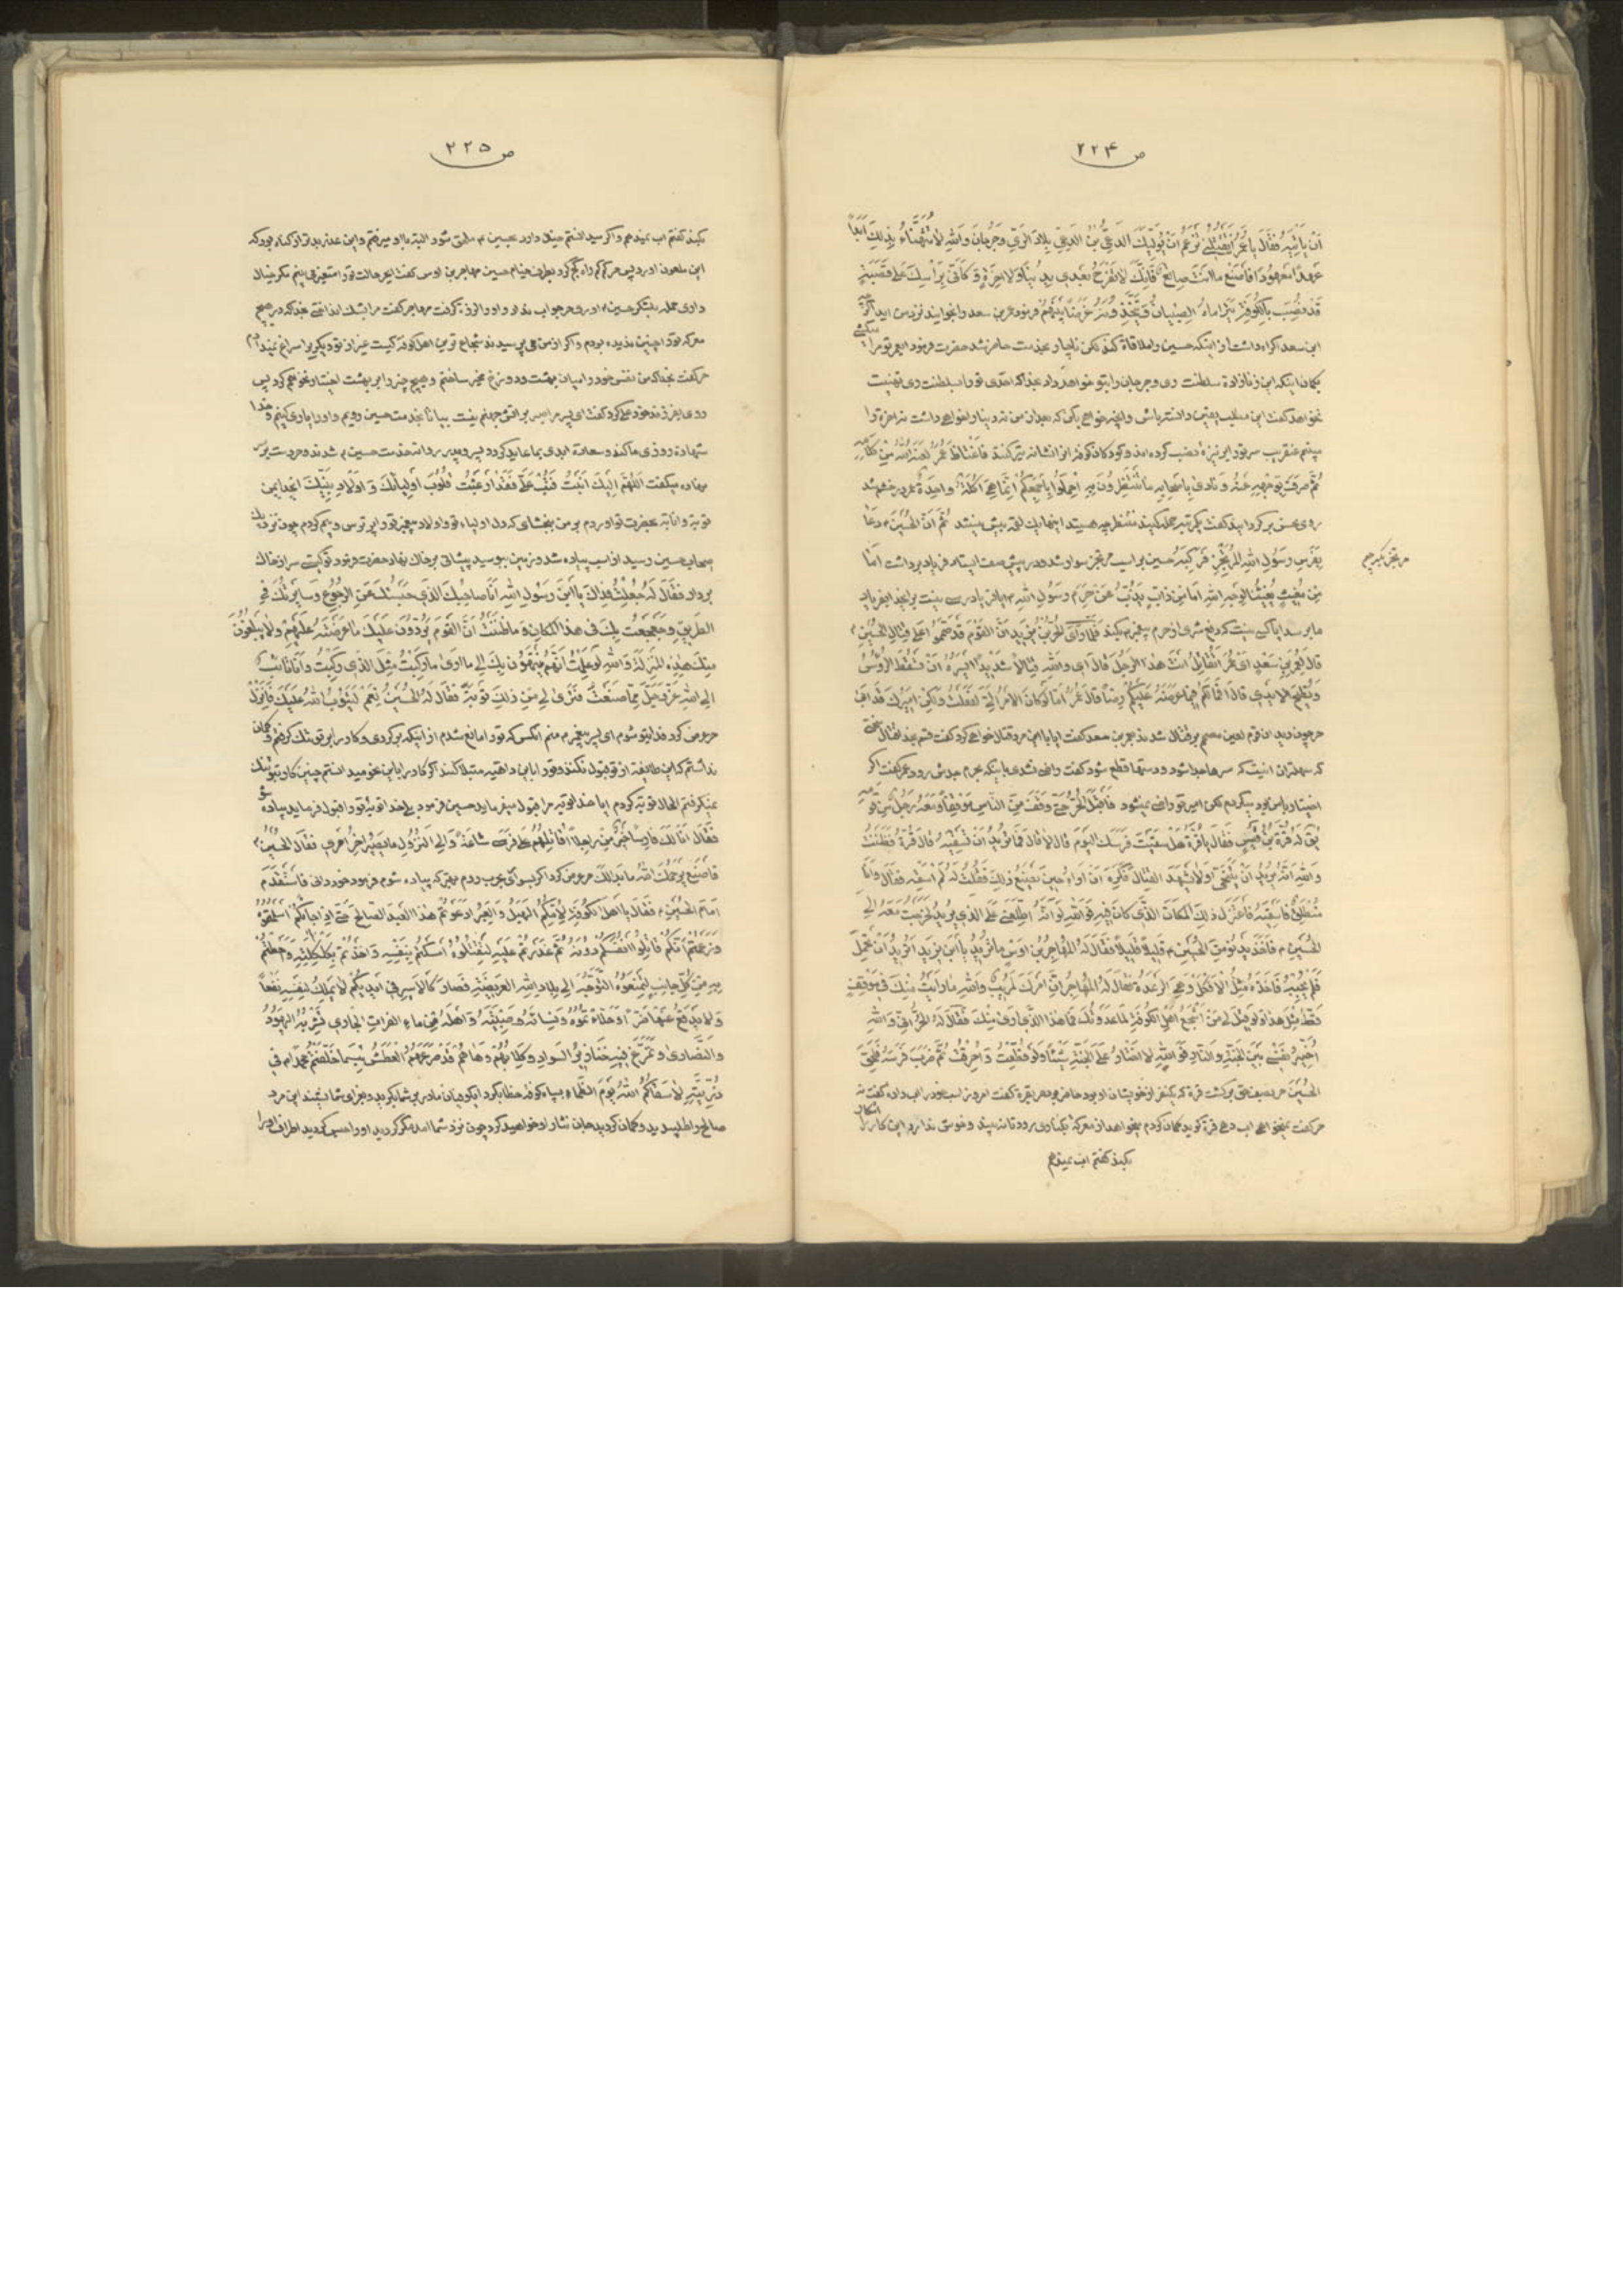 ص ۲۲۴
اَنْ یَأْتِیَهُ فَقَالَ یا عُمَرُ اَتَقْتُلُنی تَزْعَمُ اَنْ یُوَلِّیَكَ الدَّعِیُّ بْنُ الدَّعِیِّ بِلادَ الرَّیِّ وَجُرْجانَ وَاللهِ لا تَتَهَنَّاءُ بِذلِكَ اَبَداً
عَهْداً مَعْهُوداً فَاصْنَعْ ما اَنْتَ صانِعٌ فَاِنَّكَ لا تَفْرَحُ بَعْدی بِدُنْیا وَلا اخِرَةٍ وَ كَاَنّی بِرَأْسِكَ عَلی قَصَبَةٍ
قَدْ نُصِبَ بِالْكُوفَةِ یَتَراماهُ الصِّبْیانُ وَ یَتَّخِذُونَهُ غَرَضاً بَیْنَهُمْ فرمود عمر بن سعد را بخوانید نزد من اید اگرچه
ابن سعد اکراه داشت از اینکه حسین را ملاقاة کند لکن ناچار بخدمت حاضر شد حضرت فرمود ایعمر تو مرا میکشی
بگمان اینکه ابن زنازاده سلطنت ری و جرجان را بتو خواهد داد بخدا که احدی تو را بسلطنت ری تهنیت
نخواهد گفت این مطلب یقین دانسته باش و انچه خواهی بکن که بعد از من نه دنیا و نخواهی داشت نه اخرة را
میبینم عنقریب سر تو را بر نیزه نصب کرده اند و کودکان کوفه انرا نشانه تیر کنند فَاغْتاظَ عُمَرُ لَعَنَهُ اللهُ مِنْ كَلامِهِ
ثُمَّ صَرَفَ بِوَجْهِهِ عَنْهُ وَ نادی بِاَصْحابِهِ ما تَنْتَظِرُونَ بِهِ اِحْمِلُوا بِاَجْمَعِكُمْ اِنَّما هِیَ اُكْلَةٌ واحِدَةٌ عمر در خشم شد
روی نحس برگردانید گفت یکمرتبه حمله کنید منتظر چه هستید اینها یك لقمه بیش نیستند ثُمَّ اَنَّ الْحُسَیْنَ دَعا
بِفَرَسِ رَسُولِ اللهِ الْمُرْتَجِزِ فَرَكِبَهُ حسین بر اسب مرتجز سوار شد و در پیش صف ایستاد فریاد برداشت اَما
مِنْ مُغیثٍ یُغیثُنا لِوَجْهِ اللهِ اَما مِنْ ذابٍّ یَذُبُّ عَنْ حَرَمِ رَسُولِ اللهِ ایا فریادرسی نیست برای خدا بفریاد
ما برسد ایا کسی نیست که دفع شری از حرم پیغمبر بکند فَلَمّا رَأَی الْحُرُّ بْنُ یَزیدَ اَنَّ الْقَوْمَ قَدْ صَمَّمُوا عَلی قِتالِ الْحُسَیْنِ
قالَ لِعُمَرَ بْنِ سَعْدٍ اَیْ عُمَرُ اَتُقاتِلُ اَنْتَ هذَا الرَّجُلَ قالَ ای وَاللهِ قِتالاً شَدیداً اَیْسَرُهُ اَنْ تَسْقُطَ الرُّؤُسُ
وَ تَطیحَ الْاَیْدی قالَ اَفَما لَكُمْ فیما عَرَضَهُ عَلَیْكُمْ رِضاً قالَ عُمَرُ اَما لَوْ كانَ الْاَمْرُ اِلَیَّ لَفَعَلْتُ وَلكِنْ اَمیرُكَ قَدْ اَبی
حر چون دید ان قوم لعین مصمم بر قتال شدند بعمر بن سعد گفت ایا با این مرد قتال خواهی کرد گفت قسم بخدا قتال سختی
که سهلتر ان اینست که سرها جدا شود و دستها قطع شود گفت راضی نشدی باینکه بحرم جدش رود عمر گفت اگر
اختیار با من بود میکردم لکن امیر تو راضی نمیشود فَاَقْبَلَ الْحُرُّ حَتّی وَقَفَ مِنَ النّاسِ مَوْقِفاً وَ مَعَهُ رَجُلٌ مِنْ قَوْمِهِ
یُقالُ لَهُ قُرَّةُ بْنُ قَیْسٍ فَقالَ یا قُرَّةُ هَلْ سَقَیْتَ فَرَسَكَ الْیَوْمَ قالَ لا قالَ فَما تُریدُ اَنْ تَسْقِیَهُ قالَ قُرَّةُ فَظَنَنْتُ
وَاللهِ اَنَّهُ یُریدُ اَنْ یَتَنَحّی وَلا یَشْهَدَ الْقِتالَ فَكَرِهَ اَنْ اَراهُ حینَ یَصْنَعُ ذلِكَ فَقُلْتُ لَهُ لَمْ اَسْقِهِ فَقالَ وَاَنَا
مُنْطَلِقٌ فَاَسْقیهِ فَاعْتَزَلَ ذلِكَ الْمَكانَ الَّذی كانَ فیهِ فَوَاللهِ لَوْ اَنَّهُ اطْلَعَنی عَلَی الَّذی یُریدُ لَخَرَجْتُ مَعَهُ اِلَی
الْحُسَیْنِ فَاَخَذَ یَدْنُو مِنَ الْحُسَیْنِ قَلیلاً قَلیلاً فَقالَ لَهُ الْمُهاجِرُ بْنُ اَوْسٍ ما تُریدُ یا ابْنَ یَزیدَ اَتُریدُ اَنْ تَحْمِلَ
فَلَمْ یُجِبْهُ فَاَخَذَهُ مِثْلُ الْاَفْكَلِ وَ هِیَ الرَّعْدَةُ فَقالَ لَهُ الْمُهاجِرُ اِنَّ اَمْرَكَ لَمُریبٌ وَاللهِ ما رَاَیْتُ مِنْكَ فی مَوْقِفٍ
قَطُّ مِثْلَ هذا وَلَوْ قیلَ لی مَنْ اَشْجَعُ اَهْلِ الْكُوفَةِ لَما عَدَوْتُكَ فَما هذَا الَّذی اَری مِنْكَ فَقالَ لَهُ الْحُرُّ اِنّی وَاللهِ
اُخَیِّرُ نَفْسی بَیْنَ الْجَنَّةِ وَالنّارِ فَوَاللهِ لا اَخْتارُ عَلَی الْجَنَّةِ شَیْئاً وَلَوْ قُطِّعْتُ وَ اُحْرِقْتُ ثُمَّ ضَرَبَ فَرَسَهُ فَلَحِقَ
الْحُسَیْنَ حر بصف حق برگشت قره که یکنفر از خویشان او بود حاضر بود حر بقره گفت امروز اسب خود را اب داده گفت نه
حر گفت نمیخواهی اب دهی قره گوید گمان کردم میخواهد از معرکه بکناری رود تا نه بیند و خوش ندارد این کار را
بکند گفتم اب نمیدهم
مرتجز بکسر جیم
ص ۲۲۵
بکند گفتم اب نمیدهم و اگر میدانستم میل دارد بحسین ملحق شود البته با او میرفتم و این عذر بدتر از گناه بود که
ابن ملعون اورد پس حر کم کم راه کج کرد بطرف خیام حسین مهاجر بن اوس گفت ایحر حالت تو را متغیر می بینم مگر خیال
داری حمله بلشکر حسین اوری حر جواب نداد و او را لرزه گرفت مهاجر گفت مرا بشك انداختی بخدا که در هیچ
معرکه تو را چنین ندیده بودم و اگر از من می پرسیدند شجاع ترین اهل کوفه کیست غیر از تو دیگریرا سراغ نمیدادم
حر گفت بخدا که من نفس خود را میان بهشت و دوزخ مخیر ساختم و هیچ چیز را بر بهشت اختیار نخواهم کرد پس
روی بفرزند خود علی کرد گفت ای پسر مرا صبر بر اتش جهنم نیست بیا تا بخدمت حسین رویم و او را یاری کنیم خدا
شهادة روزی ما کند و سعادة ابدی بما عاید گردد پسر و پدر روانه خدمت حسین شدند و حر دست بر سر
نهاده میگفت اَللّهُمَّ اِلَیْكَ اَنَبْتُ فَتُبْ عَلَیَّ فَقَدْ اَرْعَبْتُ قُلُوبَ اَوْلِیائِكَ وَ اَوْلادِ نَبِیِّكَ ایخدا من
توبه و انابه بحضرت تو اوردم بر من ببخشای که دل اولیاء تو و اولاد پیغمبر تو را بر ترس و بیم کردم چون نزدیك
بسپاه حسین رسید از اسب پیاده شد و زمین ببوسید پیشانی بر خاك نهاد حضرت فرمود تو کیستی سر از خاك
بردار فَقالَ لَهُ جُعِلْتُ فِداكَ یَا ابْنَ رَسُولِ اللهِ اَنَا صاحِبُكَ الَّذی حَبَسْتُكَ عَنِ الرُّجُوعِ وَ سایَرْتُكَ فِی
الطَّریقِ وَ جَعْجَعْتُ بِكَ فی هذَا الْمَكانِ وَ ما ظَنَنْتُ اَنَّ الْقَوْمَ یَرُدُّونَ عَلَیْكَ ما عَرَضْتَهُ عَلَیْهِمْ وَلا یَبْلُغُونَ
مِنْكَ هذِهِ الْمَنْزِلَةَ وَاللهِ لَوْ عَلِمْتُ اَنَّهُمْ یَنْتَهُونَ بِكَ اِلی ما اَری ما رَكِبْتُ مِثْلَ الَّذی رَكِبْتُ وَ اَنَا تائِبٌ
اِلَی اللهِ عَزَّ وَجَلَّ مِمّا صَنَعْتُ فَتَری لی مِنْ ذلِكَ تَوْبَةً فَقالَ لَهُ الْحُسَیْنُ نَعَمْ یَتُوبُ اللهُ عَلَیْكَ فَانْزِلْ
حر عرض کرد فدایتو شوم ای پسر پیغمبر منم انکس که تو را مانع شدم از اینکه برگردی و کار را بر تو تنك گرفتم و گمان
نداشتم که این طایفه از تو قبول نکنند و تو را باین داهیه مبتلا کنند اگر کار را باین نحو میدانستم چنین کار بتو تنك
نمیگرفتم الحال توبه کردم ایا خدا توبه مرا قبول میفرماید حسین فرمود بلی خدا توبه تو را قبول فرماید پیاده شو
فَقالَ اَنَا لَكَ فارِساً خَیْرٌ مِنّی راجِلاً اُقاتِلُهُمْ عَلی فَرَسی ساعَةً وَ اِلَی النُّزُولِ ما یَصیرُ اخِرُ اَمْری فَقالَ الْحُسَیْنُ
فَاصْنَعْ یَرْحَمُكَ اللهُ ما بَدا لَكَ حر عرض کرد اگر بسواری بحرب روم بهتر که پیاده شوم فرمود خود دانی فَاسْتَقْدَمَ
اَمامَ الْحُسَیْنِ فَقالَ یا اَهْلَ الْكُوفَةِ لِاُمِّكُمُ الْهَبَلُ وَ الْعَبَرُ اَدَعَوْتُمْ هذَا الْعَبْدَ الصّالِحَ حَتّی اِذا جاءَكُمْ اَسْلَمْتُمُوهُ
وَ زَعَمْتُمْ اَنَّكُمْ قاتِلُوا اَنْفُسَكُمْ دُونَهُ ثُمَّ عَدَوْتُمْ عَلَیْهِ لِتَقْتُلُوهُ اَمْسَكْتُمْ بِنَفْسِهِ وَ اَخَذْتُمْ بِكَلْكَلِهِ وَ اَحَطْتُمْ
بِهِ مِنْ كُلِّ جانِبٍ لِتَمْنَعُوهُ التَّوَجُّهَ اِلی بِلادِ اللهِ الْعَریضَةِ فَصارَ كَالْاَسیرِ فی اَیْدیكُمْ لا یَمْلِكُ لِنَفْسِهِ نَفْعاً
وَلا یَدْفَعُ عَنْها ضَرّاً وَ حَلَأْتُمُوهُ وَ نِساءَهُ وَ صِبْیَتَهُ وَ اَهْلَهُ عَنْ ماءِ الْفُراتِ الْجاری یَشْرَبُهُ الْیَهُودُ
وَ النَّصاری وَ تَمَرَّغُ فیهِ خَنازیرُ السَّوادِ وَ كِلابُهُمْ وَ ها هُمْ قَدْ صَرَعَهُمُ الْعَطَشُ بِئْسَما خَلَّفْتُمْ مُحَمَّداً فی
ذُرِّیَّتِهِ لا سَقاكُمُ اللهُ یَوْمَ الظَّماءِ بسپاه کوفه خطاب کرد ایکوفیان مادر بر شما بگرید و بعزای شما نشیند این مرد
صالح را طلبیدید و گمان کردید جان نثار او خواهید کرد چون نزد شما امد مکر کردید او را حبس کردید اطراف او را